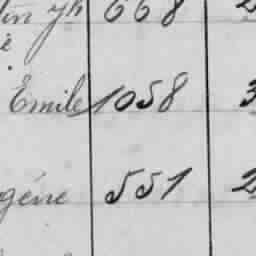 668
Emile 1058 3
gène 551 2